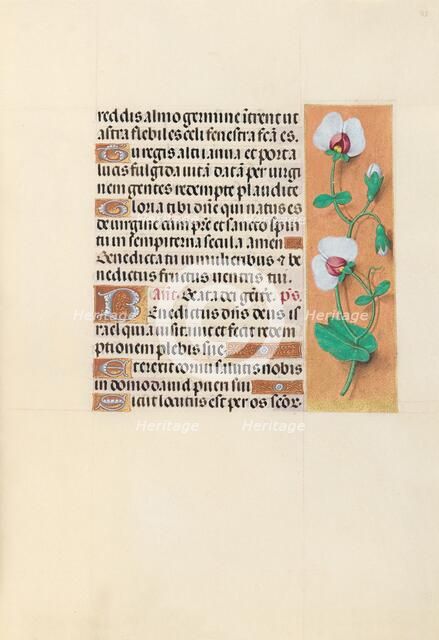 reddis almo germine i͞trent ut
astra flebiles celi fenestra fc͞a es.
Tu regis alti ianua et porta
lucis fulgida uitā datā per uirgi
nem gentes redempte plaudite
Gloria tibi dn͞e qui natus es
de uirgine cum pr͞e et sancto spiri
tu in sempiterna secula amen
Benedicta tu in mulieribus & be
nedictus fructus uentris tui.
An͞t. Beata dei geni͞t. p͞s.
Benedictus dn͞s deus is
rael quia uisitauit et fecit redem
ptionem plebis sue
Et erexit cornu salutis nobis
in domo dauid pueri sui
Sicut locutus est per os sc͞tor͞.
Heritage
Heritage
Heritage
Heritage
Heritage
Heritage
Heritage